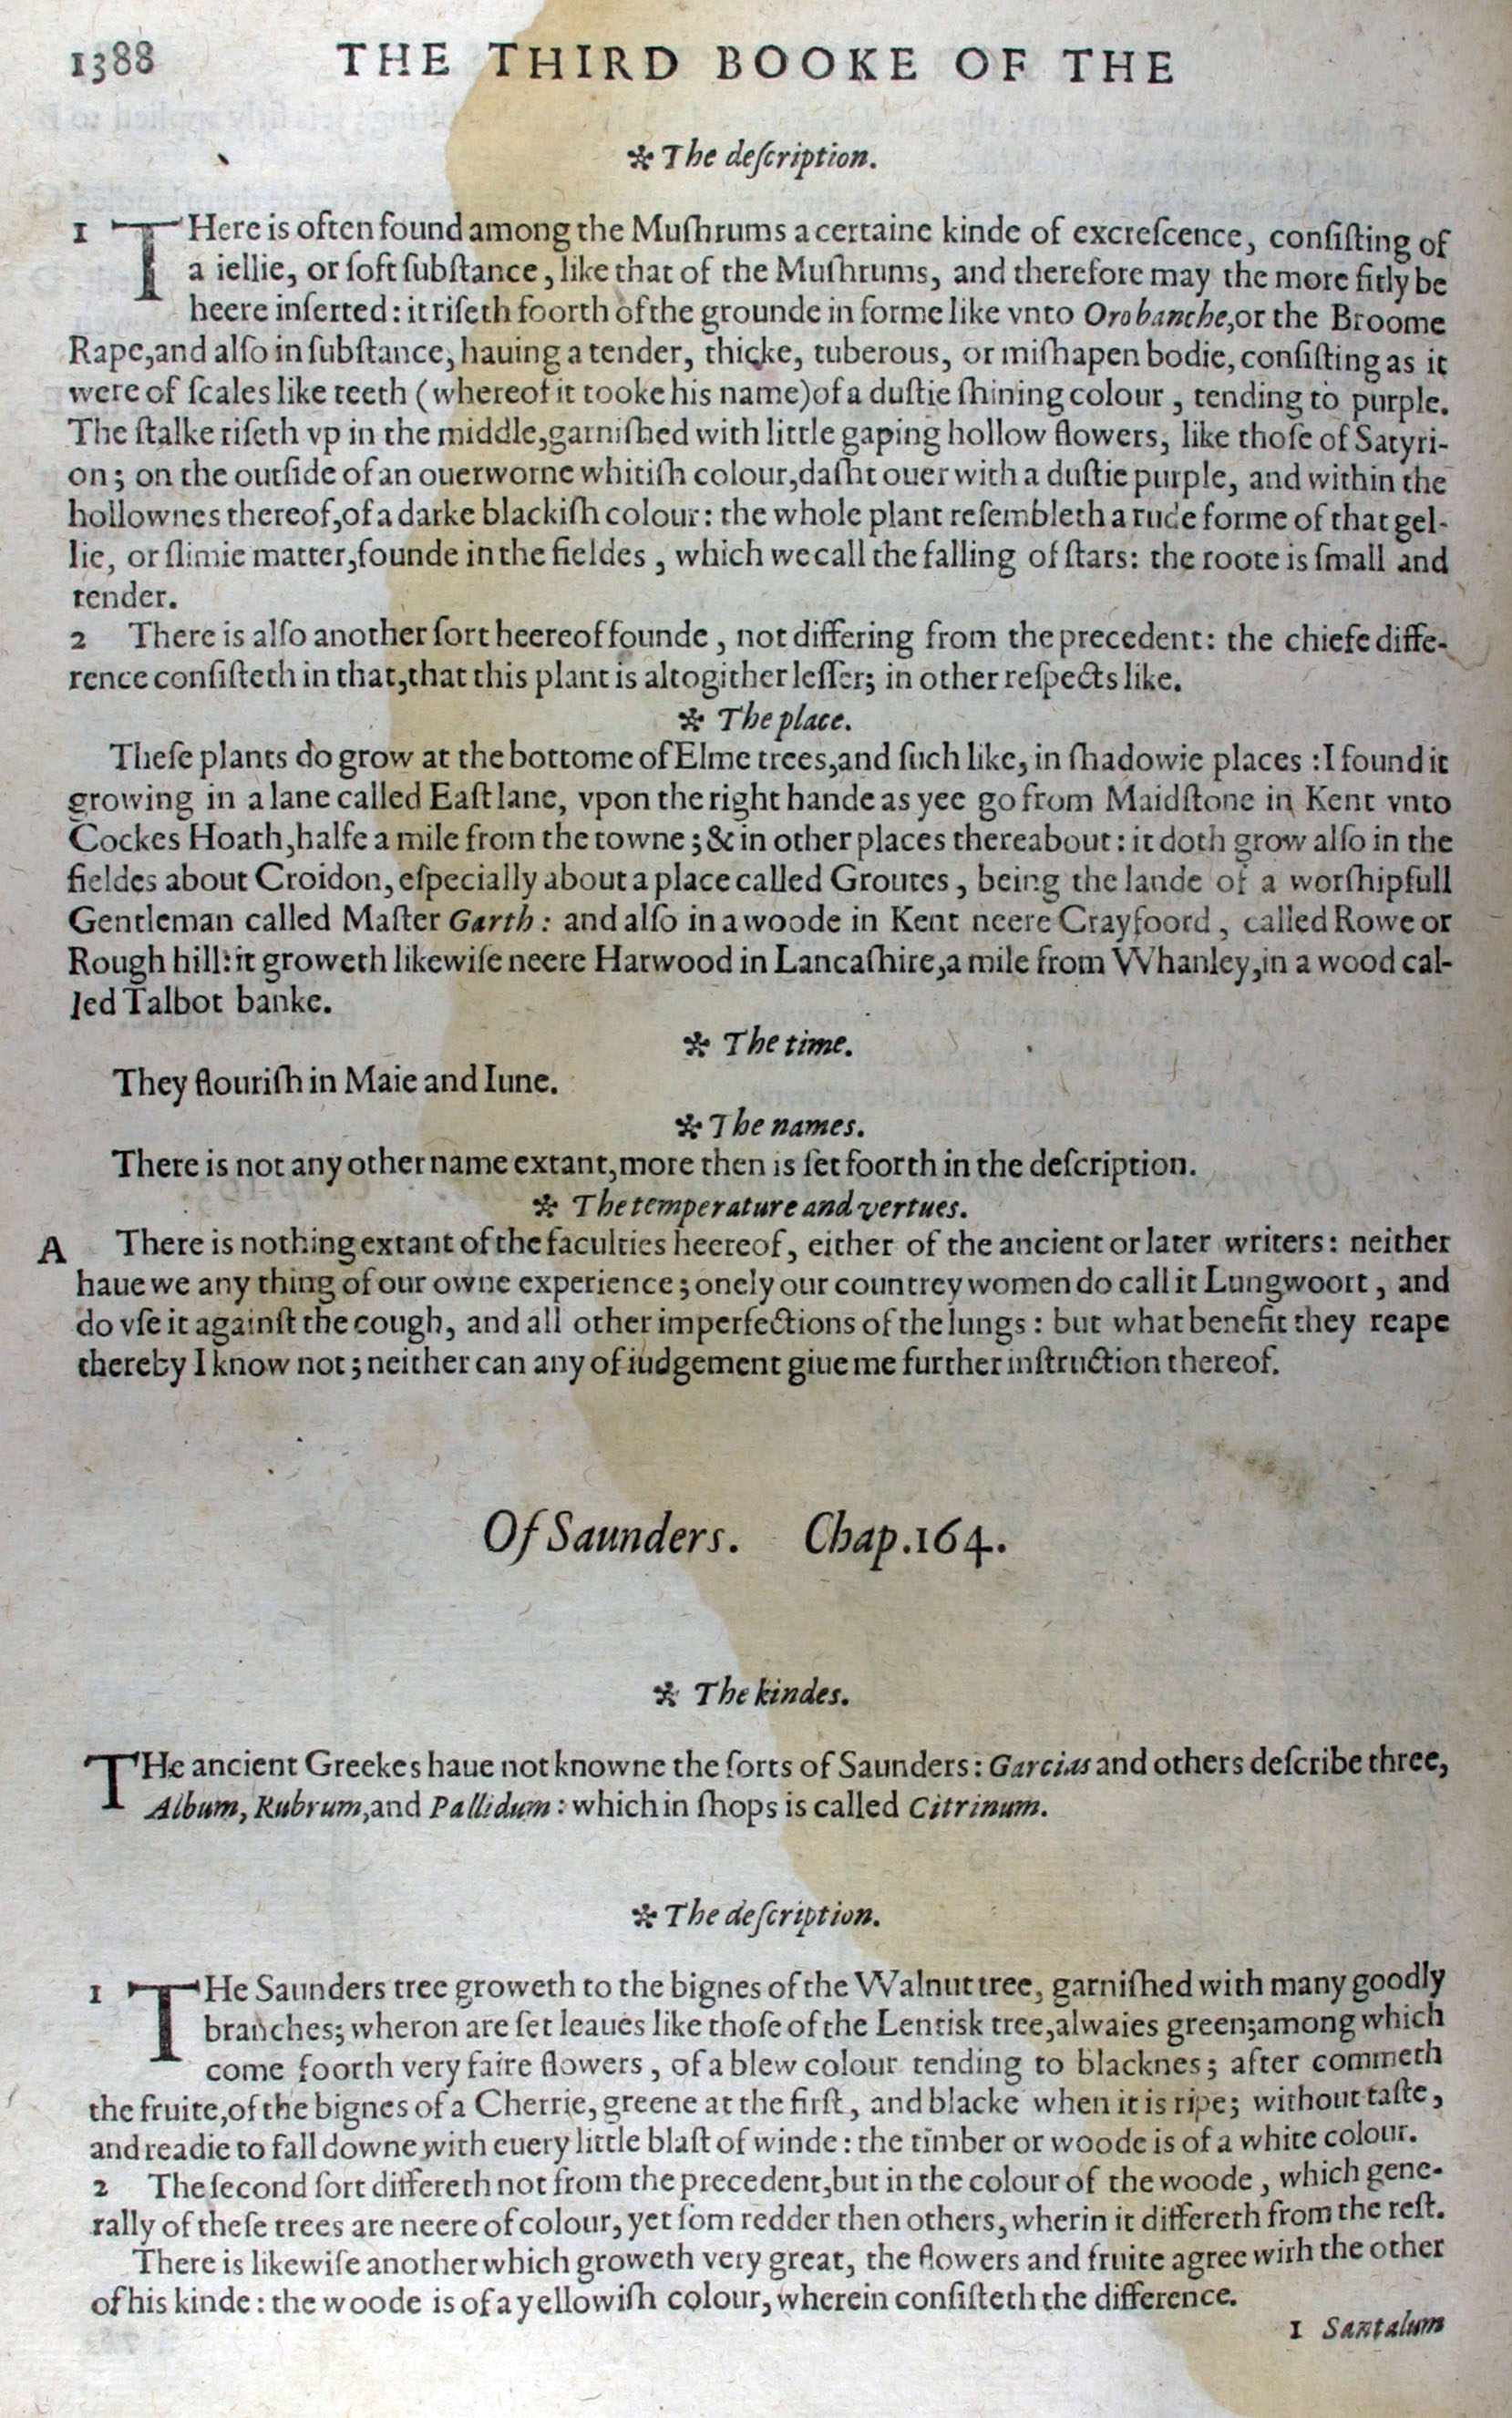 1388 THE THIRD BOOKE OF THE
✲ The deſcription.
1 THere is often found among the Muſhrums a certaine kinde of excreſcence, conſiſting of
a iellie, or ſoft ſubſtance, like that of the Muſhrums, and therefore may the more fitly be
heere inſerted: it riſeth foorth of the grounde in forme like vnto Orobanche, or the Broome
Rape, and alſo in ſubſtance, hauing a tender, thicke, tuberous, or miſhapen bodie, conſiſting as it
were of ſcales like teeth (whereof it tooke his name) of a duſtie ſhining colour, tending to purple.
The ſtalke riſeth vp in the middle, garniſhed with little gaping hollow flowers, like thoſe of Satyri-
on; on the outſide of an ouerworne whitiſh colour, daſht ouer with a duſtie purple, and within the
hollownes thereof, of a darke blackiſh colour: the whole plant reſembleth a rude forme of that gel-
lie, or ſlimie matter, founde in the fieldes, which we call the falling of ſtars: the roote is ſmall and
tender.
2 There is alſo another ſort heereof founde, not differing from the precedent: the chiefe diffe-
rence conſiſteth in that, that this plant is altogither leſſer; in other reſpects like.
✲ The place.
Theſe plants do grow at the bottome of Elme trees, and ſuch like, in ſhadowie places: I found it
growing in a lane called Eaſt lane, vpon the right hande as yee go from Maidſtone in Kent vnto
Cockes Hoath, halfe a mile from the towne; & in other places thereabout: it doth grow alſo in the
fieldes about Croidon, eſpecially about a place called Groutes, being the lande of a worſhipfull
Gentleman called Maſter Garth: and alſo in a woode in Kent neere Crayfoord, called Rowe or
Rough hill: it groweth likewiſe neere Harwood in Lancaſhire, a mile from Whanley, in a wood cal-
led Talbot banke.
✲ The time.
They flouriſh in Maie and Iune.
✲ The names.
There is not any other name extant, more then is ſet foorth in the deſcription.
✲ The temperature and vertues.
A There is nothing extant of the faculties heereof, either of the ancient or later writers: neither
haue we any thing of our owne experience; onely our countrey women do call it Lungwoort, and
do vſe it againſt the cough, and all other imperfections of the lungs: but what benefit they reape
thereby I know not; neither can any of iudgement giue me further inſtruction thereof.
Of Saunders. Chap. 164.
✲ The kindes.
THe ancient Greekes haue not knowne the ſorts of Saunders: Garcias and others deſcribe three,
Album, Rubrum, and Pallidum: which in ſhops is called Citrinum.
✲ The deſcription.
1 THe Saunders tree groweth to the bignes of the Walnut tree, garniſhed with many goodly
branches; wheron are ſet leaues like thoſe of the Lentisk tree, alwaies green; among which
come foorth very faire flowers, of a blew colour tending to blacknes; after commeth
the fruite, of the bignes of a Cherrie, greene at the firſt, and blacke when it is ripe; without taſte,
and readie to fall downe with euery little blaſt of winde: the timber or woode is of a white colour.
2 The ſecond ſort differeth not from the precedent, but in the colour of the woode, which gene-
rally of theſe trees are neere of colour, yet ſom redder then others, wherin it differeth from the reſt.
There is likewiſe another which groweth very great, the flowers and fruite agree with the other
of his kinde: the woode is of a yellowiſh colour, wherein conſiſteth the difference.
1 Santalum